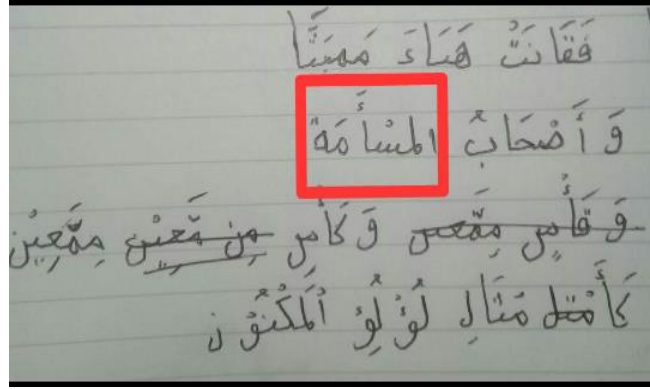 فَقَانَتْ هَبَاءَ مَمبَثًّا
وَ أَصْحَابُ المَسْأَمَةً
وَ قَأْسٍ مِمَّعِين وَكَأْسٍ مِن مَّعِيْنٍ مِمَّعِيْن
كَأَمْثل مَثَالِ لُؤْلُؤِ اُلْمَكْنُوُن